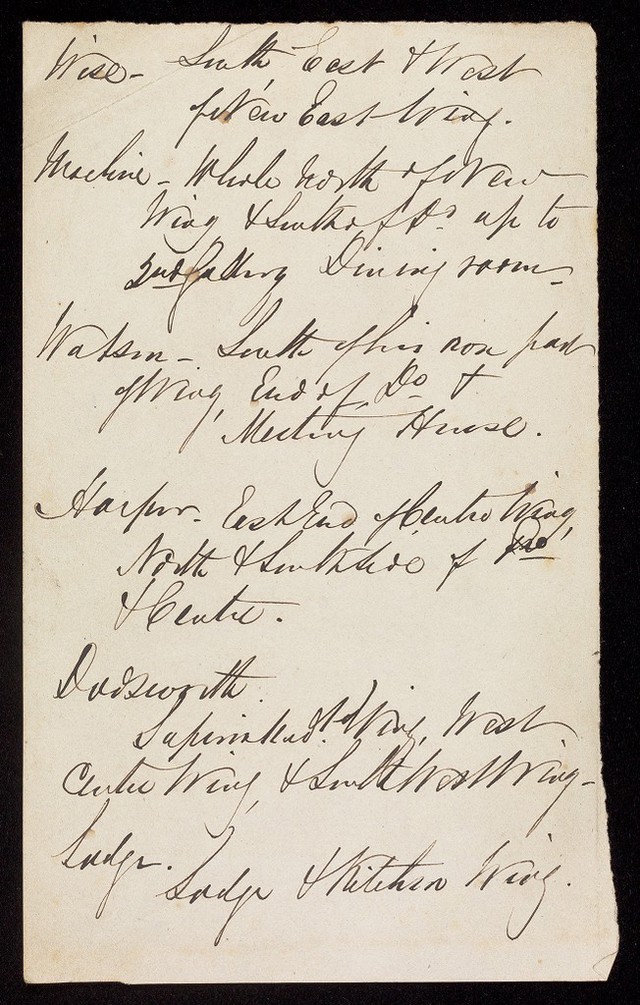 Wise - South, East & West
of New East Wing.
Machine - Whole North of New
Wing & South of Do up to
2nd Gallery Dining room -
Watson - South of his now part
of Wing, End of Do &
Meeting House.
Harper - East End of Centre Wing,
North & South side of Do
& Centre.
Dodsworth.
Superintendt Wing, West
Centre Wing, & South West Wing -
Lodge.
Lodge & Kitchen Wing.